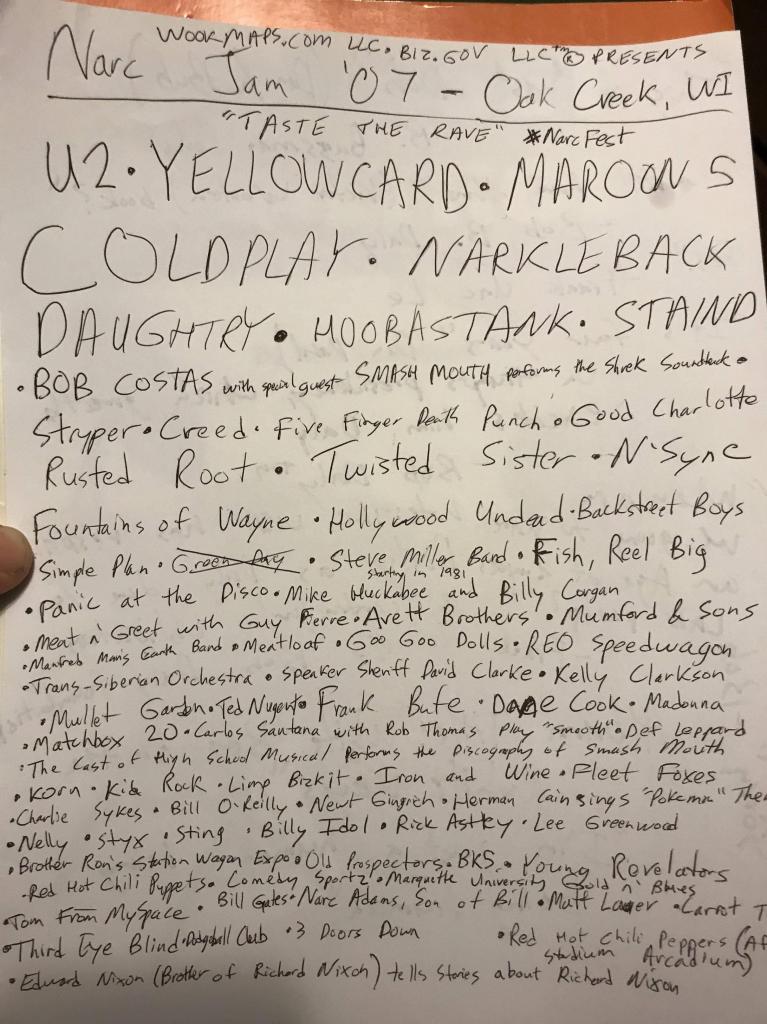 WOOKMAPS.COM LLC. BIZ.GOV LLC™® PRESENTS
Narc Jam '07 - Oak Creek, WI
"TASTE THE RAVE" *NarcFest
U2 · YELLOWCARD · MAROON 5
COLDPLAY · NARKLEBACK
DAUGHTRY · HOOBASTANK · STAIND
· BOB COSTAS with special guest SMASH MOUTH performs the Shrek Soundtrack ·
Stryper · Creed · Five Finger Death Punch · Good Charlotte
Rusted Root · Twisted Sister · N'Sync
Fountains of Wayne · Hollywood Undead · Backstreet Boys
Simple Plan · Green Day · Steve Miller Band · Fish, Reel Big
starting in 1981
· Panic at the Disco · Mike Huckabee and Billy Corgan
· Meat n' Greet with Guy Fierre · Avett Brothers · Mumford & Sons
· Manfred Mans Earth Band · Meatloaf · Goo Goo Dolls · REO Speedwagon
· Trans-Siberian Orchestra · Speaker Sheriff David Clarke · Kelly Clarkson
· Mullet Gardn · Ted Nugent · Frank Bufe · Dane Cook · Madonna
· Matchbox 20 · Carlos Santana with Rob Thomas play "Smooth" · Def Leppard
· The Cast of High School Musical performs the Discography of Smash Mouth
· Korn · Kid Rock · Limp Bizkit · Iron and Wine · Fleet Foxes
· Charlie Sykes · Bill O'Reilly · Newt Gingrich · Herman Cain sings "Pokemon" The
· Nelly · Styx · Sting · Billy Idol · Rick Astley · Lee Greenwood
· Brother Ron's Station Wagon Expo · Old Prospectors · BKS · Young Revelators
- Red Hot Chili Puppets · Comedy Sportz · Marquette University Gold n' Blues
· Tom From MySpace · Bill Gates · Narc Adams, Son of Bill · Matt Lauer · Carrot T
· Third Eye Blind · Dodgeball Club · 3 Doors Down · Red Hot Chili Peppers (Af
Stadium Arcadium)
· Edward Nixon (Brother of Richard Nixon) tells stories about Richard Nixon